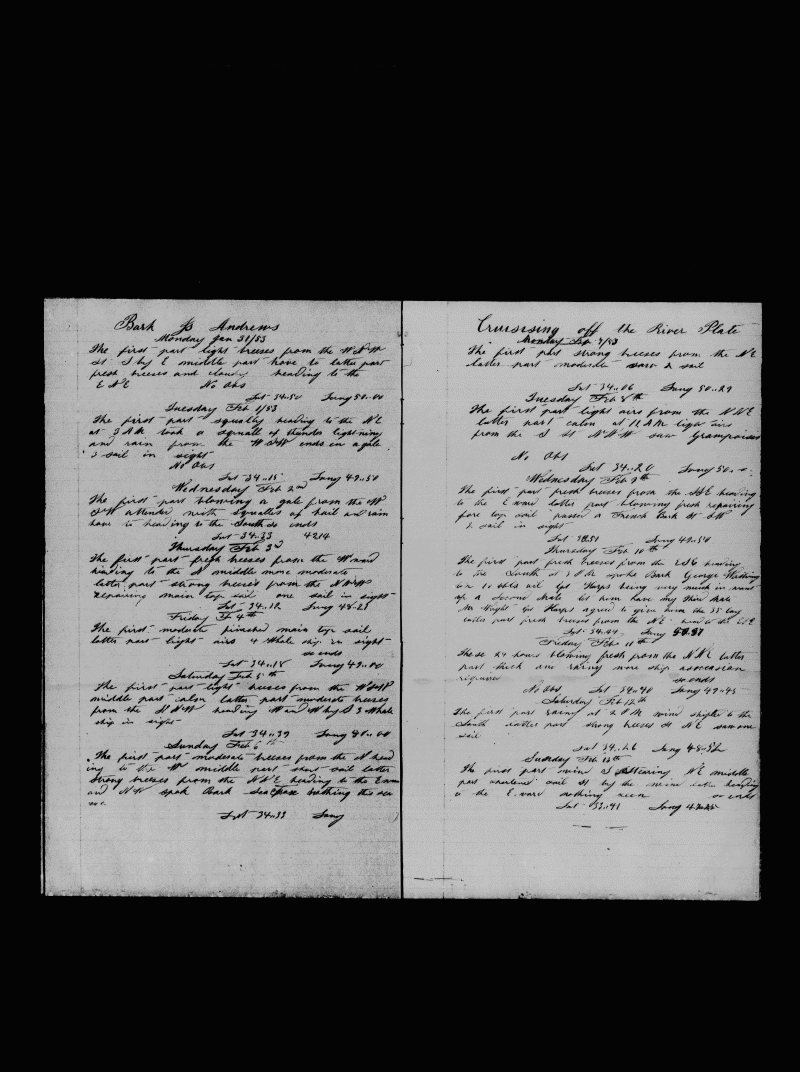 Bark Js Andrews
Monday Jan 31/53
The first part light breeses from the WNW
St S by E middle part have to latter part
fresh breeses and cloudy heading to the
ENE No Obs
Lat 34.50 Long 50.00
Tuesday Feb 1/53
The first part squally heading to the NE
at 3 AM took a squall of thunder lightning
and rain from the WSW ends in a gale
3 sail in sight
No Obs
Lat 34..15 Long 49..50
Wednesday Feb 2nd
The first part blowing a gale from the W
SW attended with squalls of hail and rain
have to heading to the South so ends
Lat 34.33 4214
Thursday Feb 3d
The first part fresh breeses from the Wward
heading to the N middle more moderate
latter part strong breeses from the NNW
repairing main top sail one sail in sight
Lat 34.12 Long 48.23
Friday F 4th
The first moderate finished main top sail
latter part light airs 4 Whale ship in sight
so ends
Lat 34..18 Long 49..00
Saturday Feb 5th
The first part light breeses from the WSW
middle part calm latter part moderate breeses
from the NNW heading W and W by S 3 Whale
ship in sight
Lat 34..39
Sunday Feb 6th
The first part moderate breeses from the N head
ing to the W middle part short sail latter
Strong breeses from the NNE heading to the Eward
and NW spok Bark nothing this sea
son
Lat 34..33 Long
Cruisising off the River Plate
Monday Feb 7/53
The first part strong breeses from the NE
latter part moderate saw a sail
Lat 34..06 Long 50..29
Tuesday Feb 8th
The first part light airs from the NNE
latter part calm at 12 AM light airs
from the S St NNW saw Grampuises
No Obs
Lat 34..20 Long 50..
Wednesday Feb 9th
The first part fresh breeses from the SSE heading
to the E ward latter part blowing fresh repairing
fore top sail passed a French Bark St SW
sail in sight
Long 49..50
Thursday Feb 10th
The first part fresh breeses from the heading
to the South at 3 PM spoke Bark George
10 obls oil Cpt Harps being very much in want
of a Second Mate let him have my Third Mate
Mr Wright Cpt Harps agreed to give him the 35 lay
latter part fresh breeses from the NE head to the ESE
Lat 34..44 Long
Friday Feb 11th
These 24 hours blowing fresh from the NNE latter
part thick and rainy wore ship as occasion
required so ends
No Obs Lat 34..40 Long 49..45
Saturday Feb 12th
The first part rainy at 2 PM wind shifted to the
South latter part strong breeses St NE saw one
sail
Lat 34..26 Long 48..52
Sunday Feb 13th
The first part wind S Stearing NE middle
part shortened sail St by the wind latter heading
to the E ward nothing seen so ends
Lat 33..41 Long